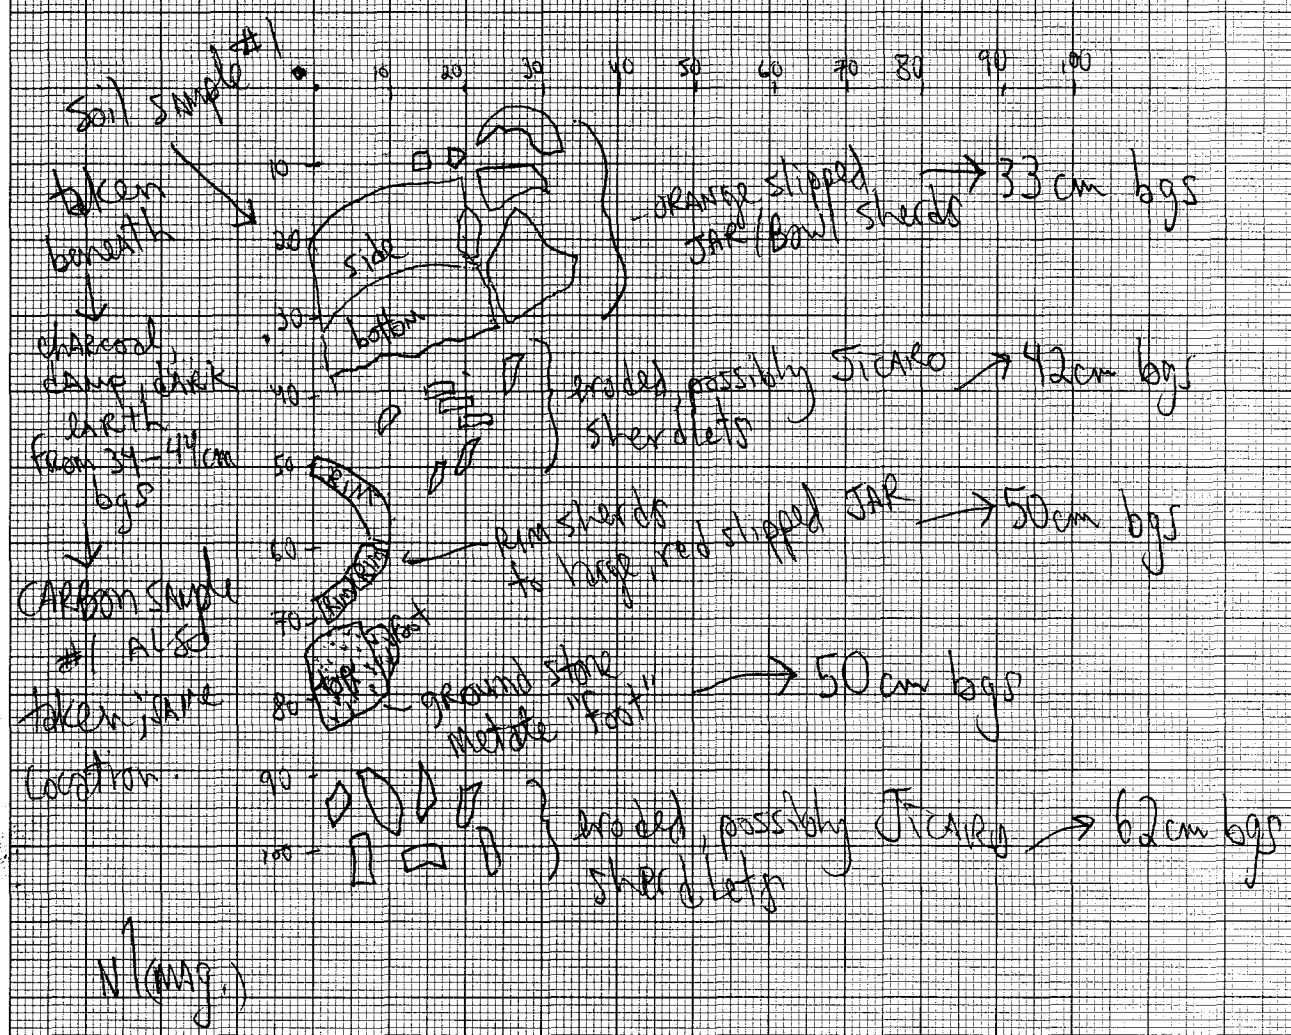 Soil SAMPLE #1
taken
beneath
chARcoal,
dAmp, dARK
EARth
from 34-44cm
bgs
CARBon SAmple
#1 ALSO
taken; SAME
Location.
10 20 30 40 50 60 70 80 90 100
10
20
30
40
50
60
70
80
90
100
side
bottom
-ORANGE slipped
JAR/Bowl sherds
33cm bgs
eroded, possibly JICARO
sherdlets
42cm bgs
RIM
RIM
RIM
RIM sherds
to large, red slipped JAR
50cm bgs
foot
ground stone
metate "foot"
50cm bgs
eroded, possibly JICARO
sherdlets
62cm bgs
N (MAg.)